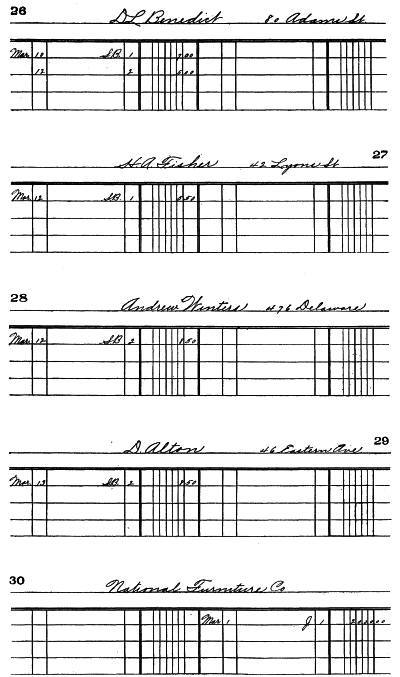 26
D L Benedict 80 Adams St.
Mar. 10 S.B. 1 9 00
12 2 6 00
27
H. A. Fisher 42 Lyons St
Mar. 12 S.B. 1 8 50
28
Andrew Winters 476 Delaware
Mar. 12 S.B. 2 8 50
29
D. Alton 46 Eastern Ave
Mar. 13 S.B. 2 8 50
30
National Furniture Co
Mar 1 J 1 2000 00